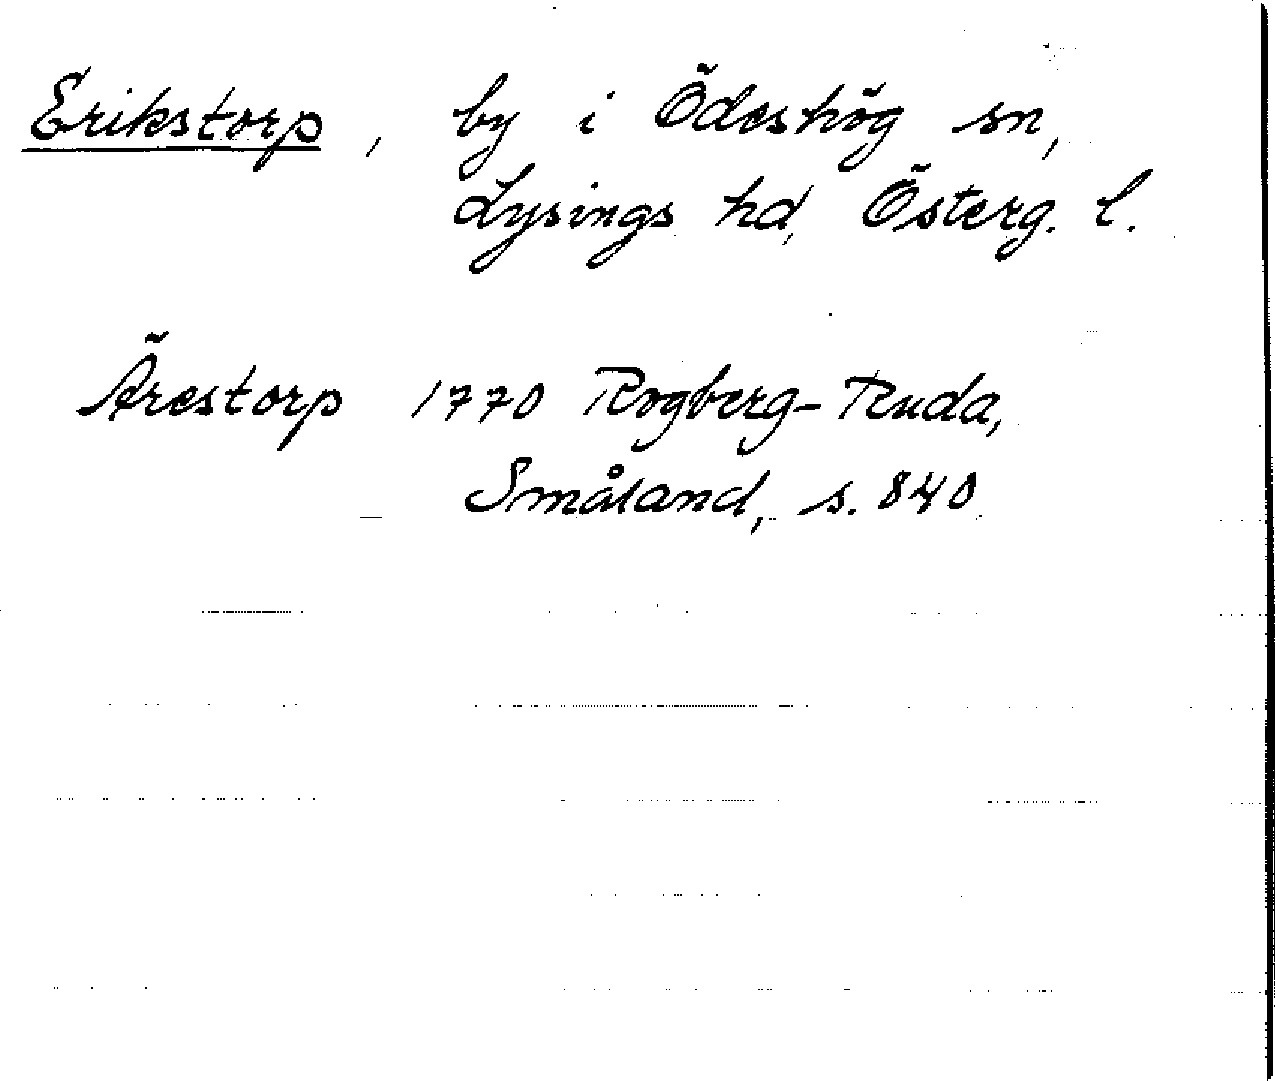 Erikstorp, by i Ödeshög sn,
Lysings hd, Österg. l.
Ärestorp 1770 Rogberg-Ruda,
Småland, s. 840